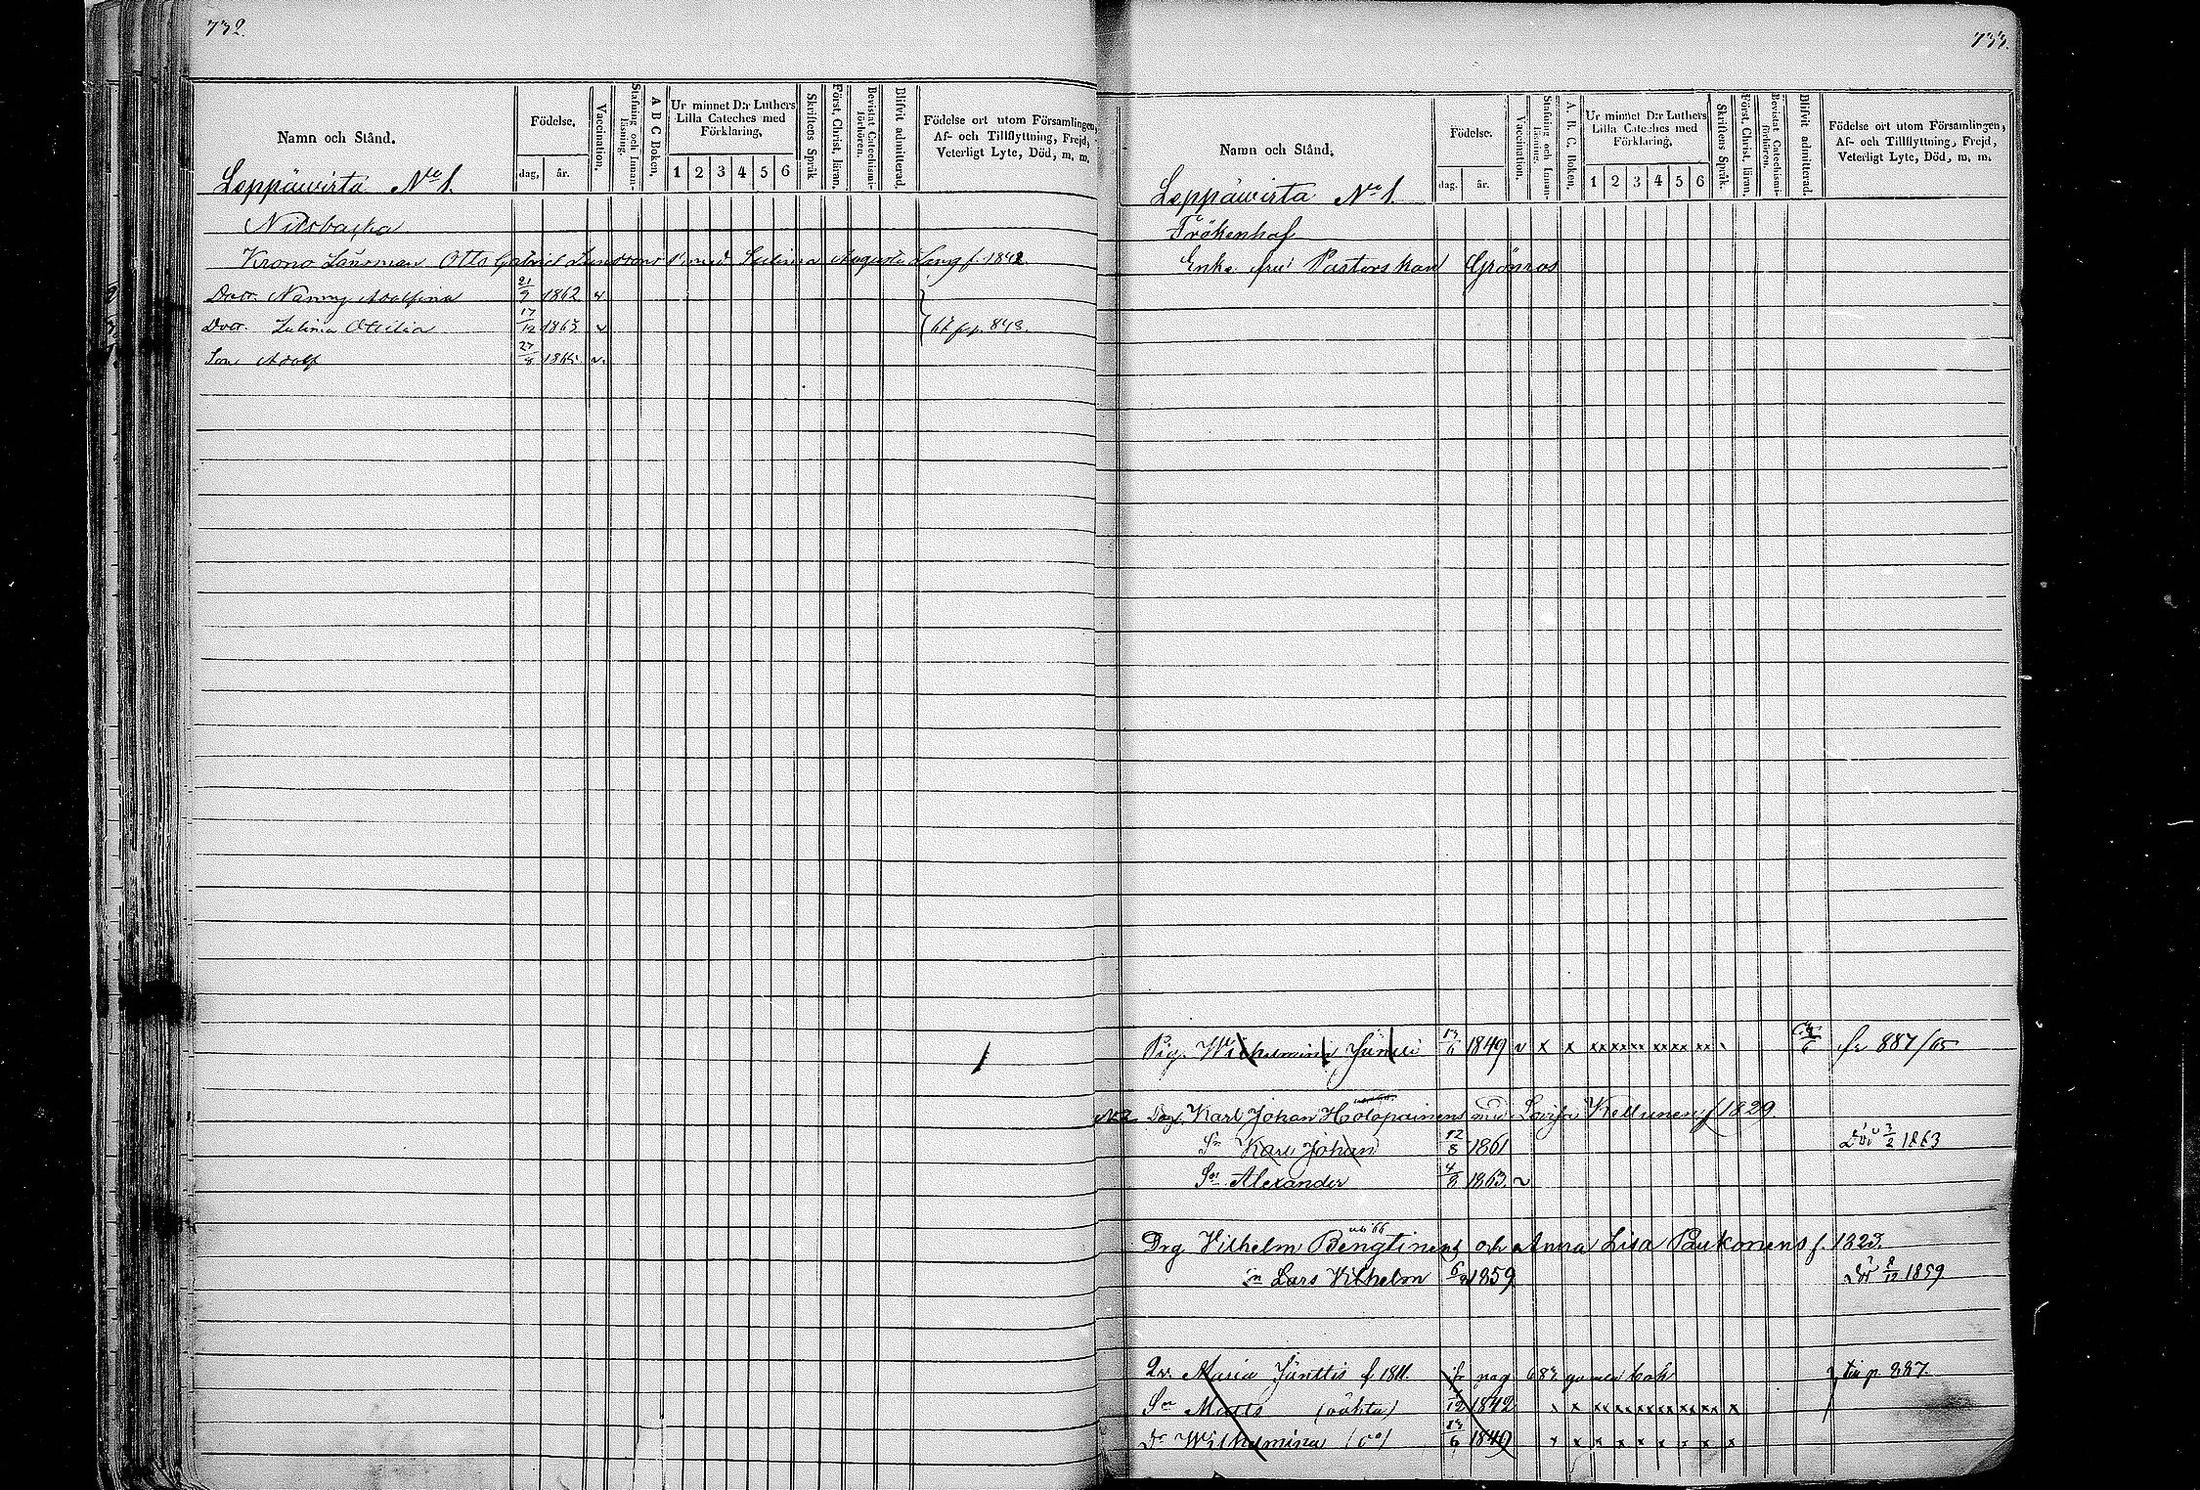 732.
Namn och Stånd.
Födelse.
dag.
år.
Vaccination.
Stafning och Innan-läsning.
A B C Boken.
Ur minnet D:r Luthers
Lilla Cateches med
Förklaring.
1 2 3 4 5 6
Skriftens Språk
Först. Christ. läran.
Bevistat Catechismi-förhören.
Blifvit admitterad.
Födelse ort utom Församlingen,
Af- och Tillflyttning, Frejd,
Veterligt Lyte, Död, m. m.
Leppäwirta No 1.
Krono Länsman Otto Gabriel med Augusta f. 1842
Dotr. Nanny Adolfina 21/9 1862 v
Dotr. Otilia 17/12 1863 v
Son Adolf 27/8 1865 v.
733.
Namn och Stånd.
Födelse.
dag.
år.
Vaccination.
Stafning och Innan-läsning.
A. B. C. Boken.
Ur minnet D:r Luthers
Lilla Cateches med
Förklaring.
1 2 3 4 5 6
Skriftens Språk.
Först. Christ. läran.
Bevistat Catechismi-förhören.
Blifvit admitterad.
Födelse ort utom Församlingen,
Af- och Tillflyttning, Frejd,
Veterligt Lyte, Död, m. m.
Leppäwirta No 1.
Frökenhof
Enke fru Pastorskan Grönroos
Pig. Wilhelmina Jäntti 13/6 1849 v x x xx xx xx xx xx xx fr 887/65
Karl Johan Holopainens med Lovisa Kellunen f 1829
Sn Karl Johan 12/8 1861 Död 3/2 1863
Sn Alexander 4/8 1863 v
Drg Vilhelm Bengtinens och Anna Lisa Paukonens f. 1823.
Sn Lars Vilhelm 1859 Död 8/12 1859
Maria Jänttis f 1811. fr pag 683 gamla bok till p. 887.
Sn Matts 1842 x x xx xx xx xx xx xx x
Dr Wilhelmina 13/6 1849 x x x x x x x x x